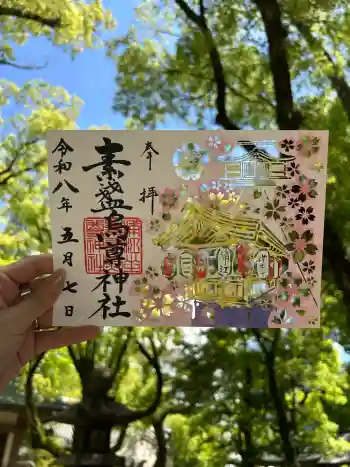 奉拝
素盞烏尊神社
令和八年五月七日